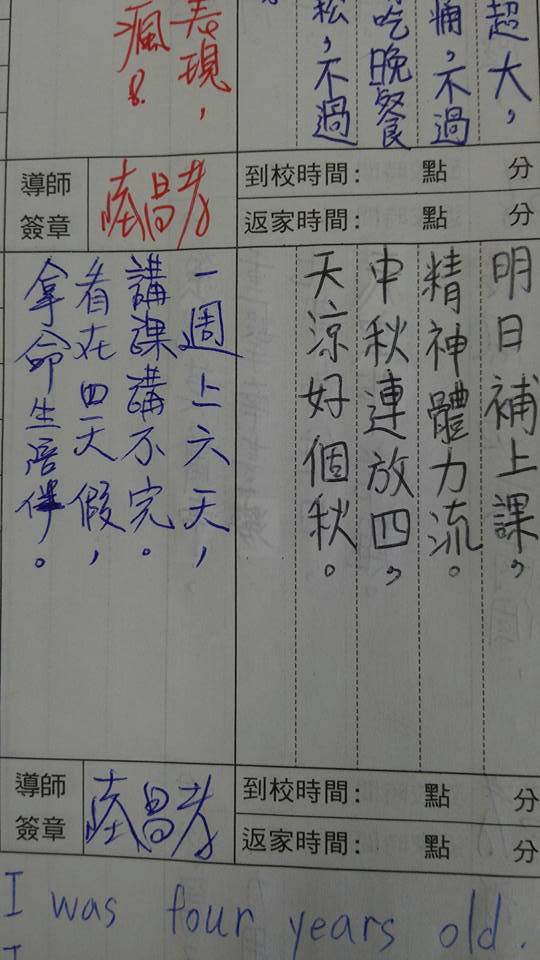 超大，
痛，不過
吃晚餐
松，不過
表現，
瘋
到校時間： 點 分
返家時間： 點 分
導師
簽章
明日補上課，
精神體力流。
中秋連放四，
天涼好個秋。
一週上六天，
講課講不完。
看在四天假，
拿命生陪伴。
到校時間： 點 分
返家時間： 點 分
導師
簽章
I was four years old.